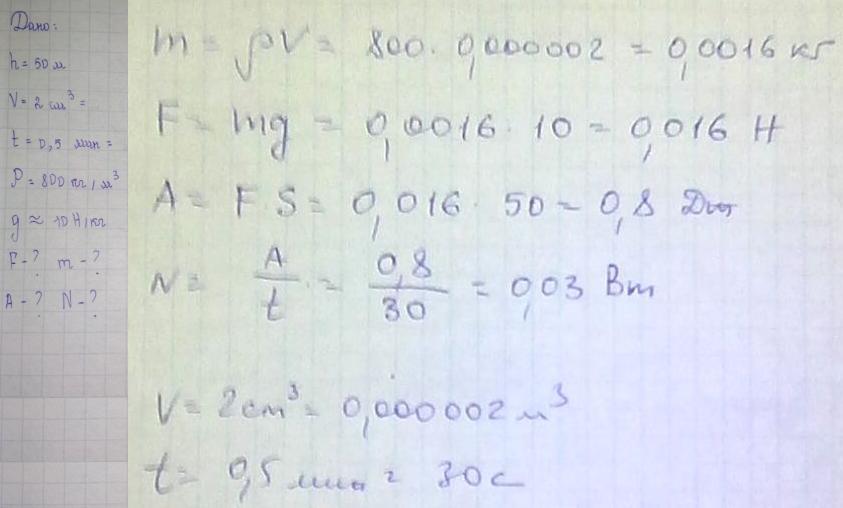 Дано:
h = 50 м
V = 2 см³ =
t = 0,5 мин =
ρ = 800 кг/м³
g ≈ 10 Н/кг
F - ? m - ?
A - ? N - ?
m = ρV = 800 · 0,000002 = 0,0016 кг
F = mg = 0,0016 · 10 = 0,016 Н
A = F S = 0,016 · 50 = 0,8 Дж
N = A/t = 0,8/30 = 0,03 Вт
V = 2 cm³ = 0,000002 м³
t = 0,5 мин = 30 с